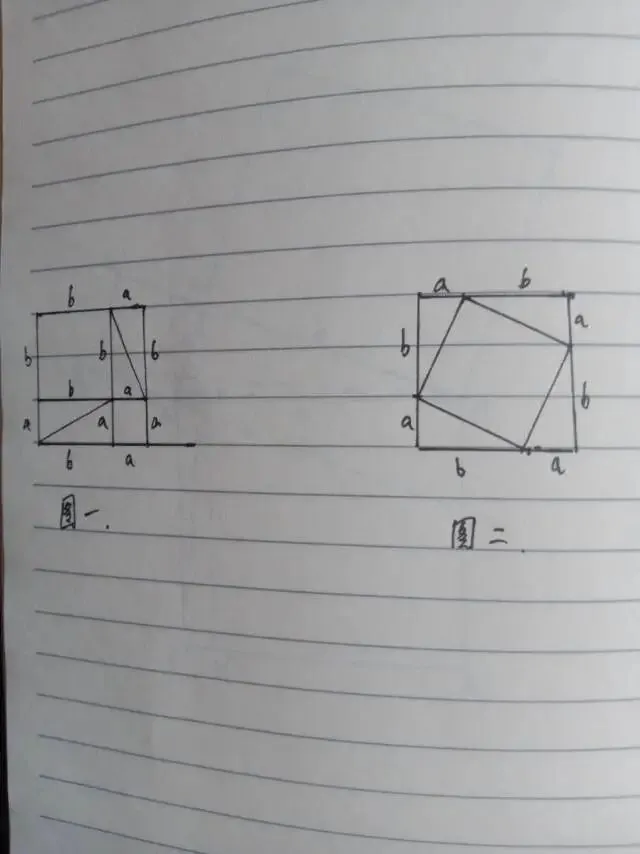 b a a b
b b b b a
b a
a a a a b
b a b a
图一.
图二.